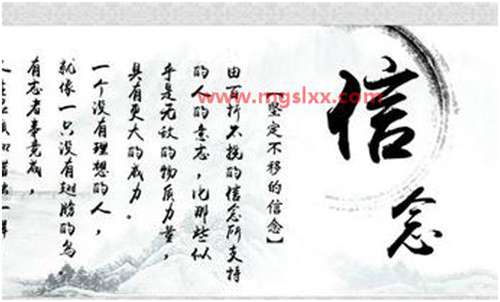 信念
【坚定不移的信念】
由百折不挠的信念所支持
的人的意志，比那些似
乎是无敌的物质力量，
具有更大的威力。
一个没有理想的人，
就像一只没有翅膀的鸟
有志者事竟成，
www.mgslxx.com